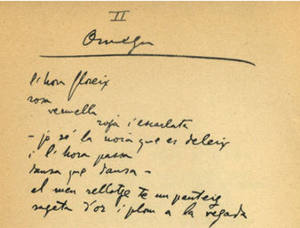 II
Omega
l'hora floreix
rosa
vermella
roja i escarlata
- jo sé la noia que es deleix
i l'hora passa
dansa que dansa -
el meu rellotge te un panteix
sageta d'or i plom a la vegada